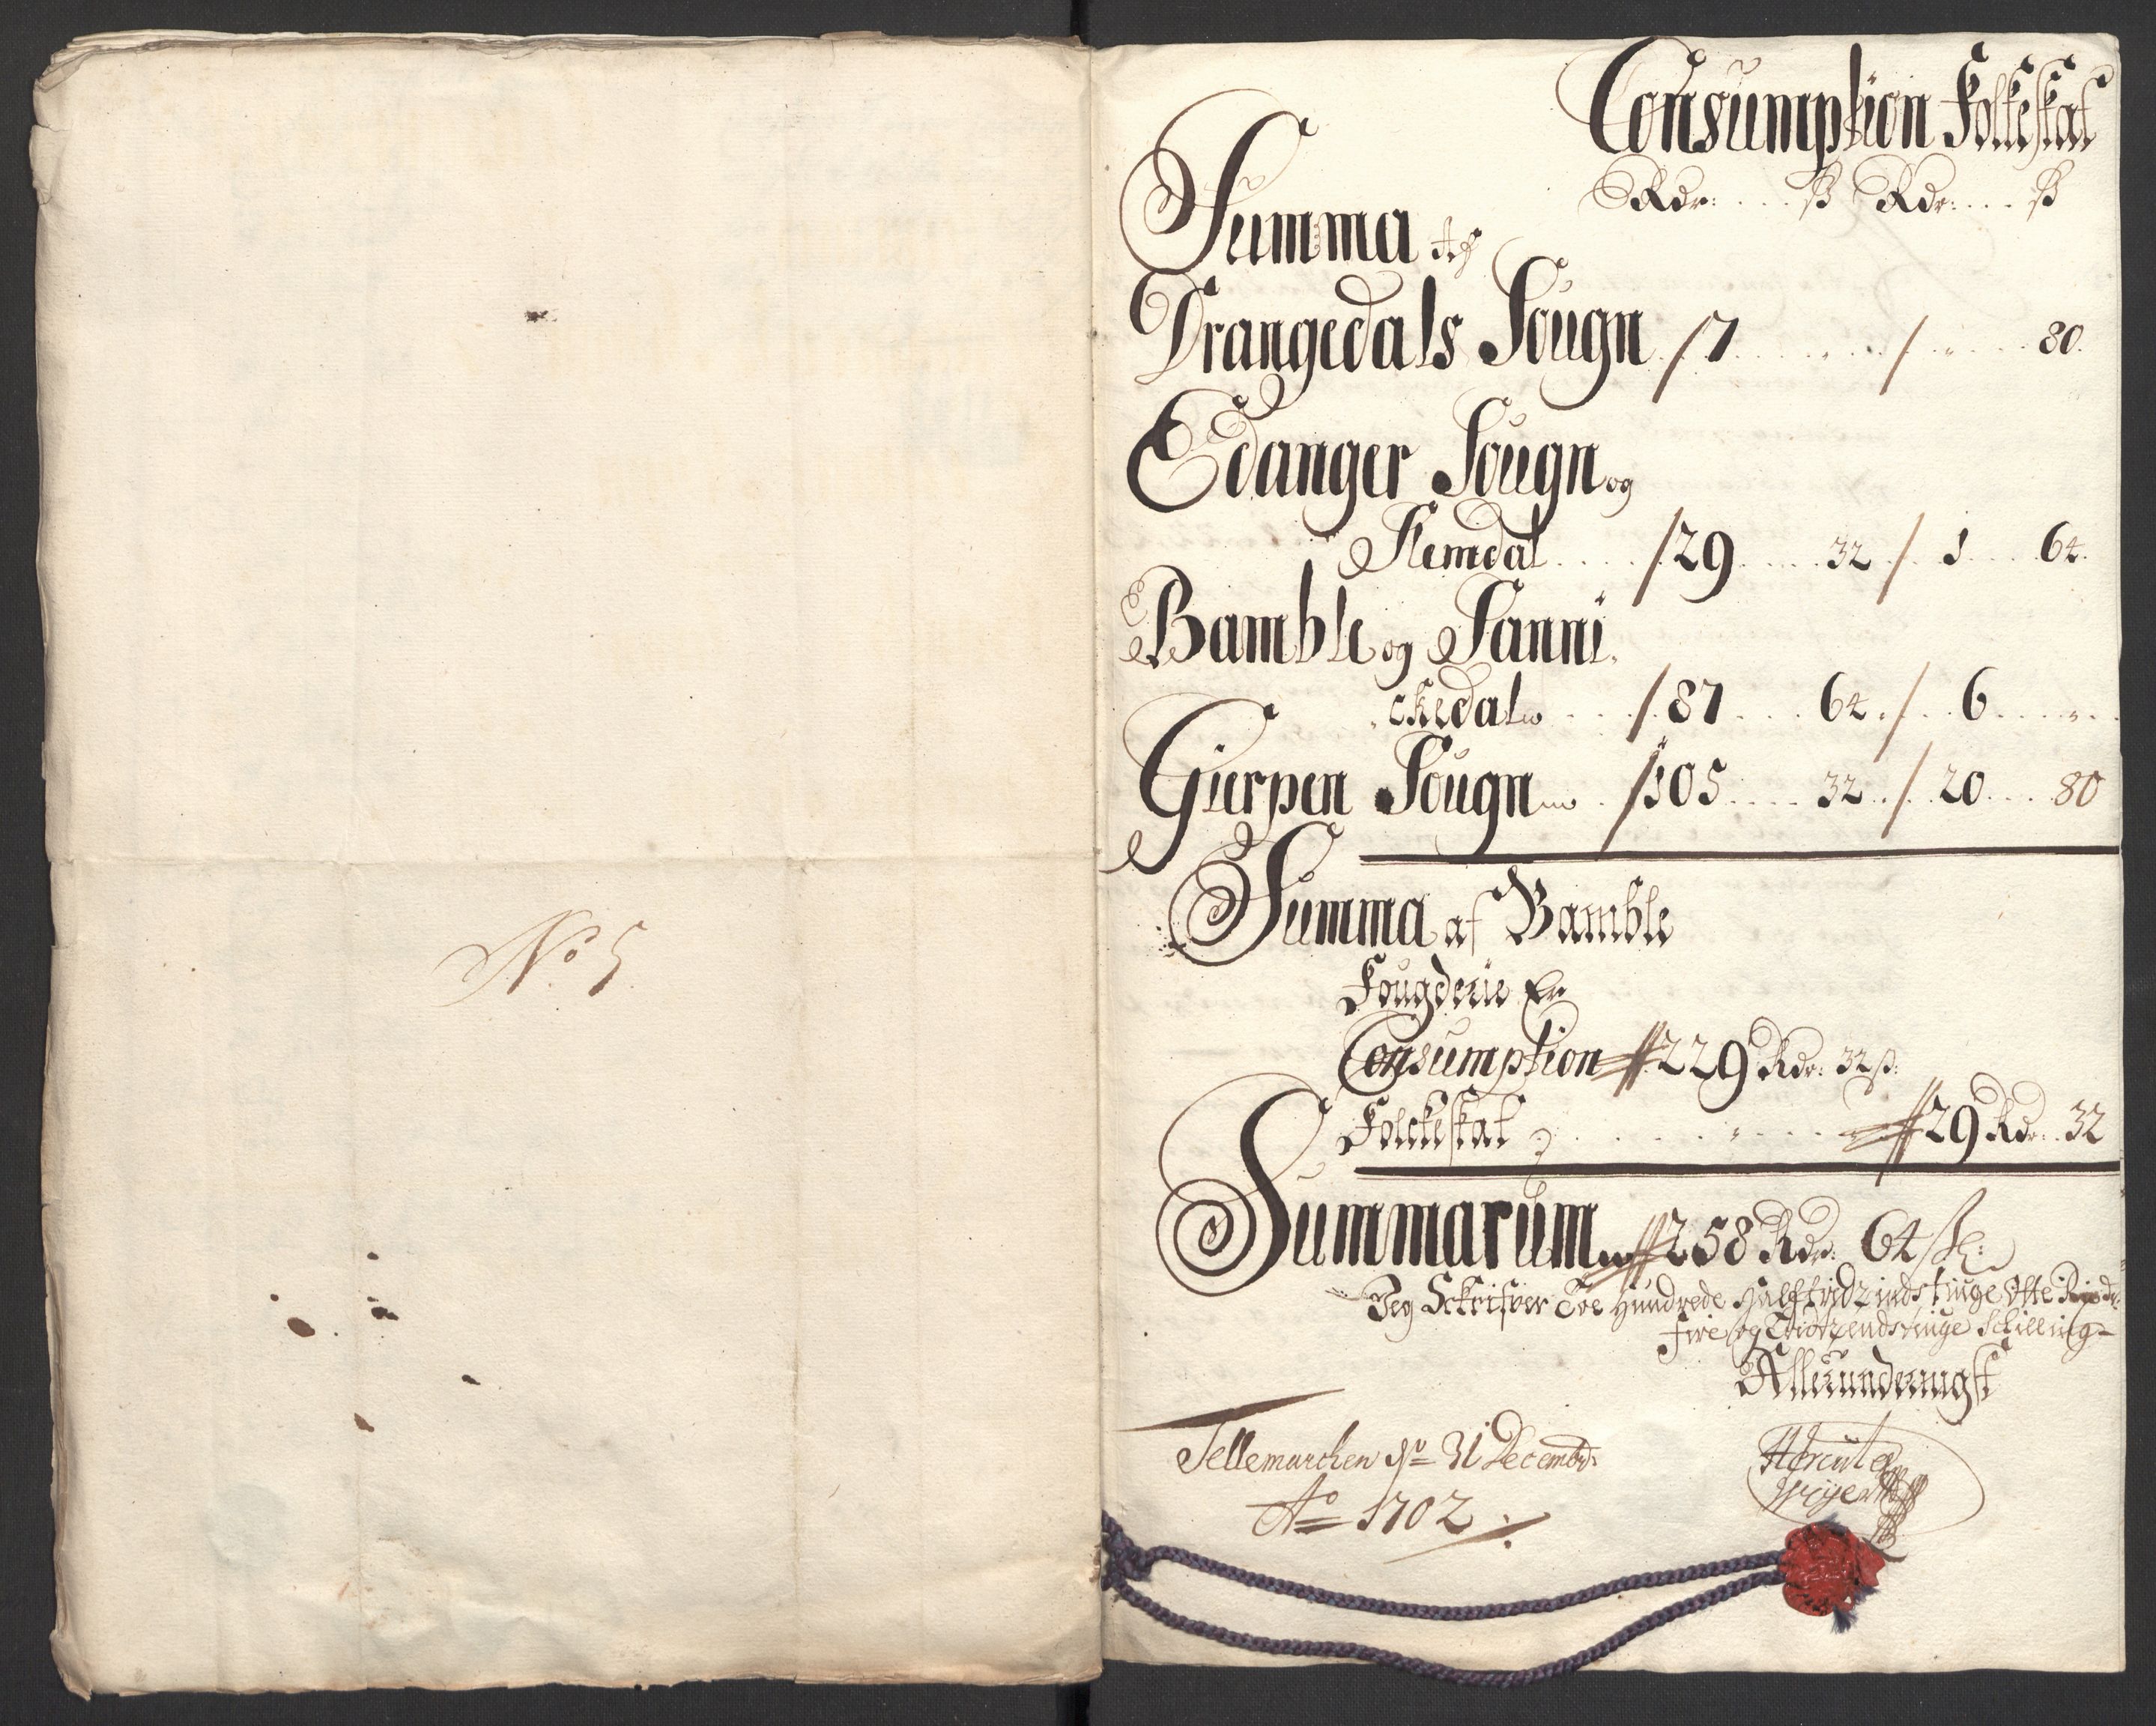 No 5.
Consumption Folkeskat
Rdr: ... ß Rdr: ... ß
Summa Af
Drangedals Sougn / 7 ... " ... / " ... 80.
Edanger Sougn og
Slemdal .... / 29 .... 32 / 1 ... 64.
Bamble og Sanni.
ckedal ... / 87 ... 64 ./. 6 ... " ..
Gierpen Sougn . / 105 .... 32 ../. 20 ... 80
Summa af Bamble
Fougderie Er
Consumption 229 Rdr: 32 ß:
Folckeskat ....... 29 Rdr. 32
Summarum 258 Rdr: 64 ß:
Jeg Schrifver Toe Hundrede Halftridzindstiuge Otte Rixdr.
fire og Tridzendstiuge Schilling
Allerunderningst
Tellemarchen dn 31 Decembr:
Ao 1702
Hercules
Weyer